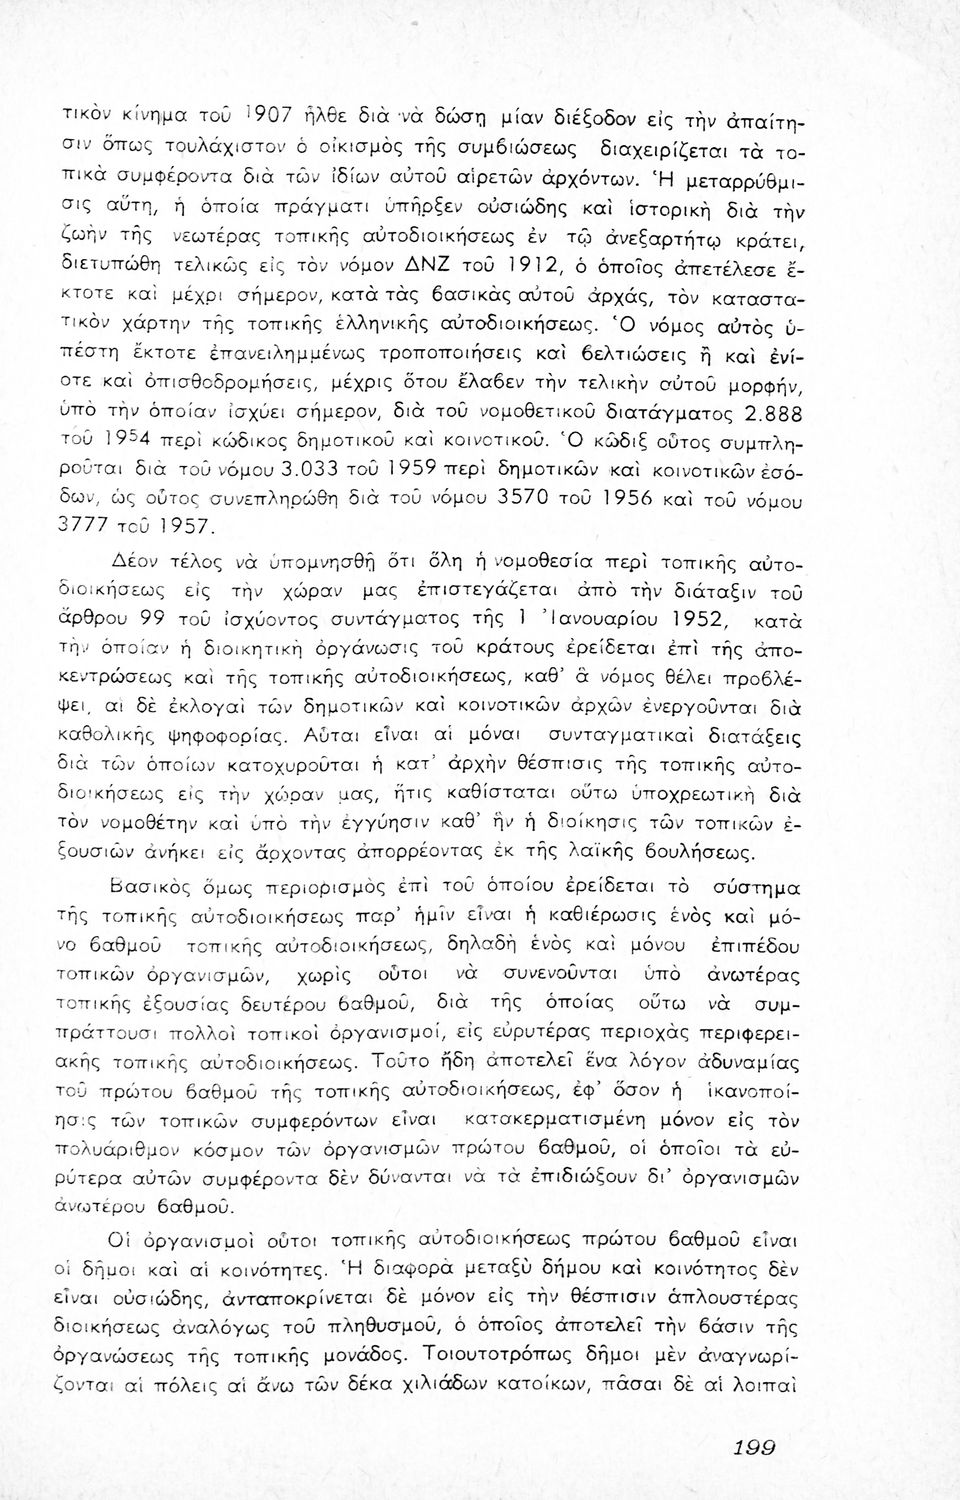 τικὸν κίνημα τοῦ 1907 ἦλθε διὰ νὰ δώσῃ μίαν διέξοδον εἰς τὴν ἀπαίτη-
σιν ὅπως τουλάχιστον ὁ οἰκισμὸς τῆς συμβιώσεως διαχειρίζεται τὰ το-
πικὰ συμφέροντα διὰ τῶν ἰδίων αὐτοῦ αἱρετῶν ἀρχόντων. Ἡ μεταρρύθμι-
σις αὕτη, ἡ ὁποία πράγματι ὑπῆρξεν οὐσιώδης καὶ ἱστορικὴ διὰ τὴν
ζωὴν τῆς νεωτέρας τοπικῆς αὐτοδιοικήσεως ἐν τῷ ἀνεξαρτήτῳ κράτει,
διετυπώθη τελικῶς εἰς τὸν νόμον ΔΝΖ τοῦ 1912, ὁ ὁποῖος ἀπετέλεσε ἔ-
κτοτε καὶ μέχρι σήμερον, κατὰ τὰς βασικὰς αὐτοῦ ἀρχάς, τὸν καταστα-
τικὸν χάρτην τῆς τοπικῆς ἑλληνικῆς αὐτοδιοικήσεως. Ὁ νόμος αὐτὸς ὑ-
πέστη ἔκτοτε ἐπανειλημμένως τροποποιήσεις καὶ βελτιώσεις ἢ καὶ ἐνί-
οτε καὶ ὀπισθοδρομήσεις, μέχρις ὅτου ἔλαβεν τὴν τελικὴν αὐτοῦ μορφήν,
ὑπὸ τὴν ὁποίαν ἰσχύει σήμερον, διὰ τοῦ νομοθετικοῦ διατάγματος 2.888
τοῦ 1954 περὶ κώδικος δημοτικοῦ καὶ κοινοτικοῦ. Ὁ κῶδιξ οὗτος συμπλη-
ροῦται διὰ τοῦ νόμου 3.033 τοῦ 1959 περὶ δημοτικῶν καὶ κοινοτικῶν ἐσό-
δων, ὡς οὗτος συνεπληρώθη διὰ τοῦ νόμου 3570 τοῦ 1956 καὶ τοῦ νόμου
3777 τοῦ 1957.
Δέον τέλος νὰ ὑπομνησθῇ ὅτι ὅλη ἡ νομοθεσία περὶ τοπικῆς αὐτο-
διοικήσεως εἰς τὴν χώραν μας ἐπιστεγάζεται ἀπὸ τὴν διάταξιν τοῦ
ἄρθρου 99 τοῦ ἰσχύοντος συντάγματος τῆς 1 Ἰανουαρίου 1952, κατὰ
τὴν ὁποίαν ἡ διοικητικὴ ὀργάνωσις τοῦ κράτους ἐρείδεται ἐπὶ τῆς ἀπο-
κεντρώσεως καὶ τῆς τοπικῆς αὐτοδιοικήσεως, καθ' ἃ νόμος θέλει προβλέ-
ψει, αἱ δὲ ἐκλογαὶ τῶν δημοτικῶν καὶ κοινοτικῶν ἀρχῶν ἐνεργοῦνται διὰ
καθολικῆς ψηφοφορίας. Αὗται εἶναι αἱ μόναι συνταγματικαὶ διατάξεις
διὰ τῶν ὁποίων κατοχυροῦται ἡ κατ' ἀρχὴν θέσπισις τῆς τοπικῆς αὐτο-
διοικήσεως εἰς τὴν χώραν μας, ἥτις καθίσταται οὕτω ὑποχρεωτικὴ διὰ
τὸν νομοθέτην καὶ ὑπὸ τὴν ἐγγύησιν καθ' ἣν ἡ διοίκησις τῶν τοπικῶν ἐ-
ξουσιῶν ἀνήκει εἰς ἄρχοντας ἀπορρέοντας ἐκ τῆς λαϊκῆς βουλήσεως.
Βασικὸς ὅμως περιορισμὸς ἐπὶ τοῦ ὁποίου ἐρείδεται τὸ σύστημα
τῆς τοπικῆς αὐτοδιοικήσεως παρ' ἡμῖν εἶναι ἡ καθιέρωσις ἑνὸς καὶ μό-
νο βαθμοῦ τοπικῆς αὐτοδιοικήσεως, δηλαδὴ ἑνὸς καὶ μόνου ἐπιπέδου
τοπικῶν ὀργανισμῶν, χωρὶς οὗτοι νὰ συνενοῦνται ὑπὸ ἀνωτέρας
τοπικῆς ἐξουσίας δευτέρου βαθμοῦ, διὰ τῆς ὁποίας οὕτω νὰ συμ-
πράττουσι πολλοὶ τοπικοὶ ὀργανισμοί, εἰς εὐρυτέρας περιοχὰς περιφερει-
ακῆς τοπικῆς αὐτοδιοικήσεως. Τοῦτο ἤδη ἀποτελεῖ ἕνα λόγον ἀδυναμίας
τοῦ πρώτου βαθμοῦ τῆς τοπικῆς αὐτοδιοικήσεως, ἐφ' ὅσον ἡ ἱκανοποί-
ησις τῶν τοπικῶν συμφερόντων εἶναι κατακερματισμένη μόνον εἰς τὸν
πολυάριθμον κόσμον τῶν ὀργανισμῶν πρώτου βαθμοῦ, οἱ ὁποῖοι τὰ εὐ-
ρύτερα αὐτῶν συμφέροντα δὲν δύνανται νὰ τὰ ἐπιδιώξουν δι' ὀργανισμῶν
ἀνωτέρου βαθμοῦ.
Οἱ ὀργανισμοὶ οὗτοι τοπικῆς αὐτοδιοικήσεως πρώτου βαθμοῦ εἶναι
οἱ δῆμοι καὶ αἱ κοινότητες. Ἡ διαφορὰ μεταξὺ δήμου καὶ κοινότητος δὲν
εἶναι οὐσιώδης, ἀνταποκρίνεται δὲ μόνον εἰς τὴν θέσπισιν ἁπλουστέρας
διοικήσεως ἀναλόγως τοῦ πληθυσμοῦ, ὁ ὁποῖος ἀποτελεῖ τὴν βάσιν τῆς
ὀργανώσεως τῆς τοπικῆς μονάδος. Τοιουτοτρόπως δῆμοι μὲν ἀναγνωρί-
ζονται αἱ πόλεις αἱ ἄνω τῶν δέκα χιλιάδων κατοίκων, πᾶσαι δὲ αἱ λοιπαὶ
199